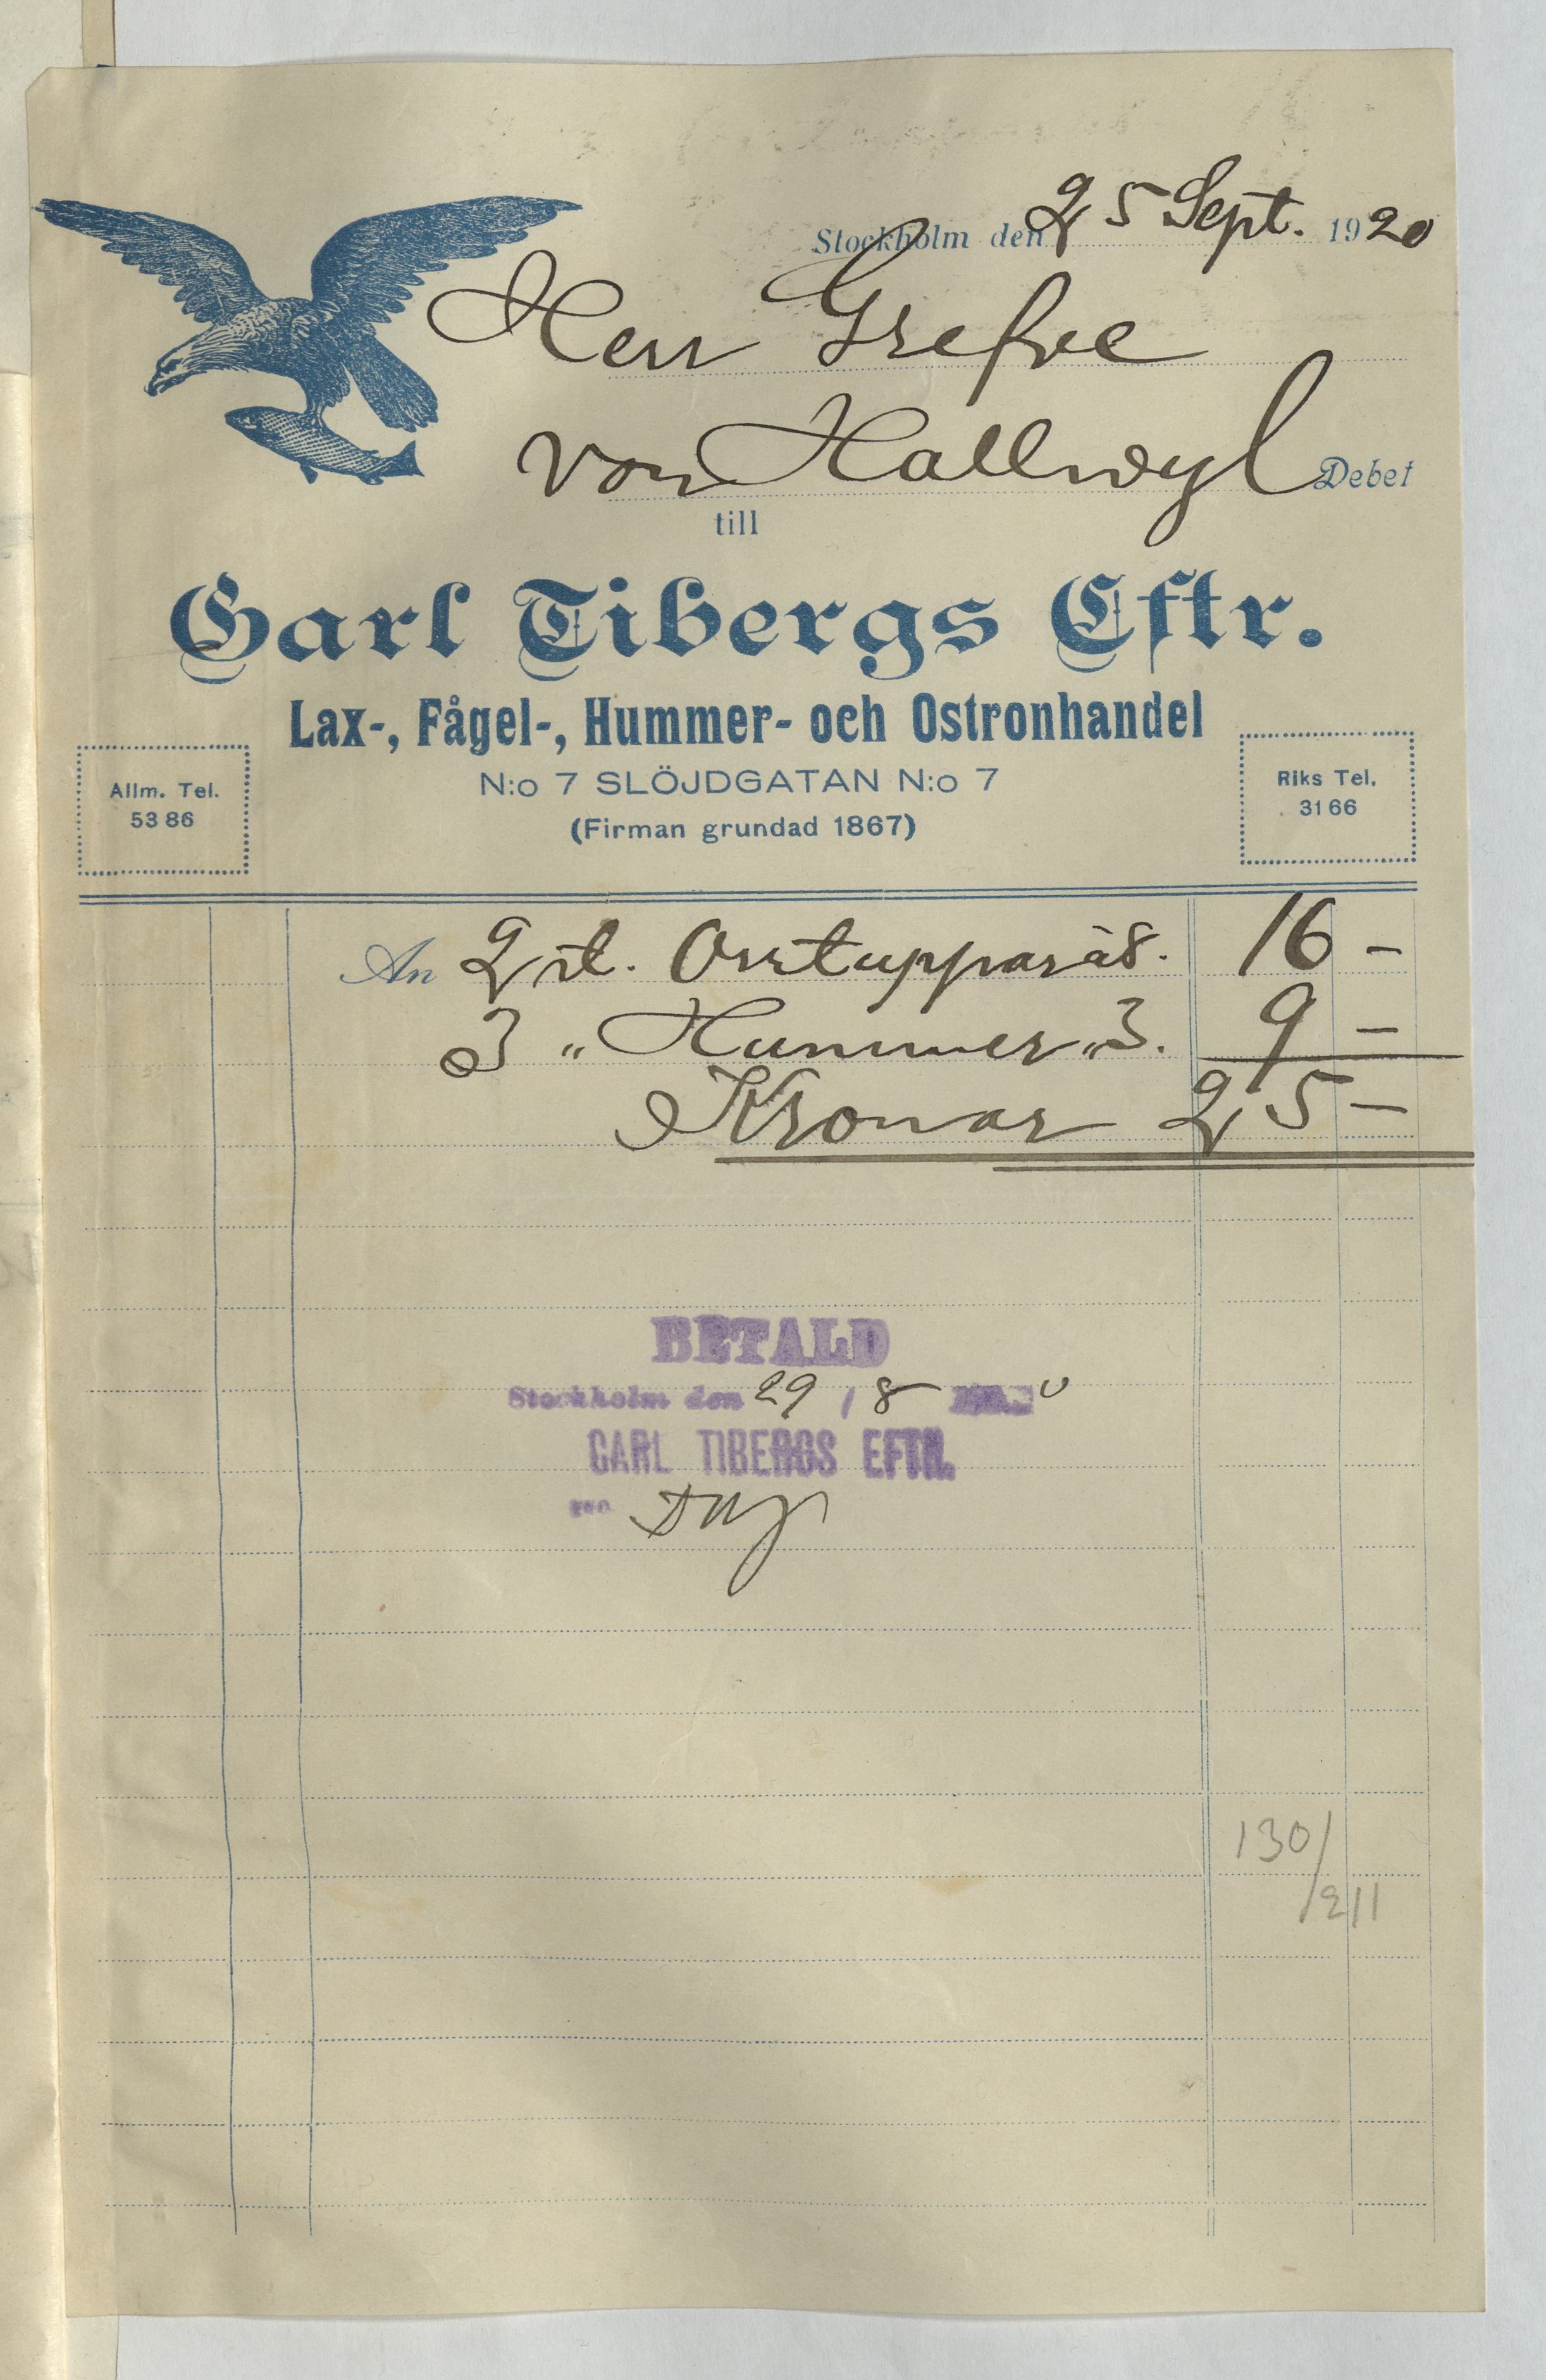 Stockholm den 25 Sept. 1920
Herr Grefve
von Hallwyl Debet
till
Carl Tibergs Eftr.
Lax-, Fågel-, Hummer- och Ostronhandel
N:o 7 SLÖJDGATAN N:o 7
(Firman grundad 1867)
Allm. Tel.
5386
Riks Tel.
3166
An 2 st. Orrtuppar à 8. 16 -
3 „ Hummer „ 3. 9 -
Kronor 25 -
BETALD
Stockholm den 29 / 8
CARL TIBERGS EFTR.
130/
211